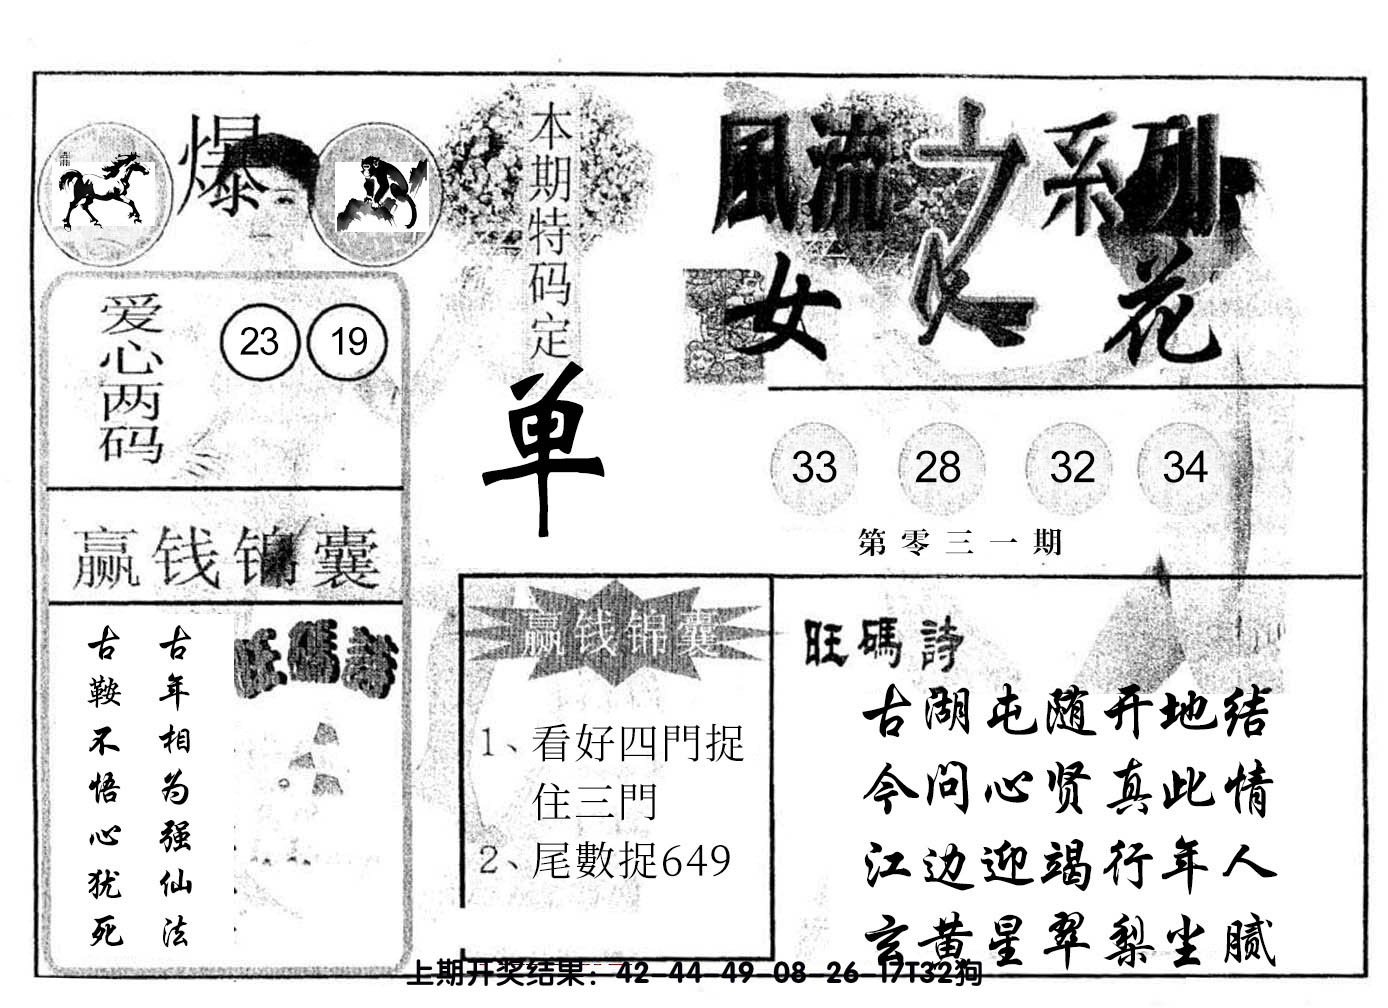 爆
爱心两码
23 19
赢钱锦囊
古年相为强仙法
古鞍不悟心犹死
旺碼詩
本期特码定
单
風流之系列
女人花
33 28 32 34
第零三一期
赢钱锦囊
1、看好四門捉
住三門
2、尾數捉649
旺碼詩
古湖屯随开地结
今问心贤真此情
江边迎竭行年人
玄黄星翠梨坐腻
上期开奖结果：42-44-49-08-26-17T32狗